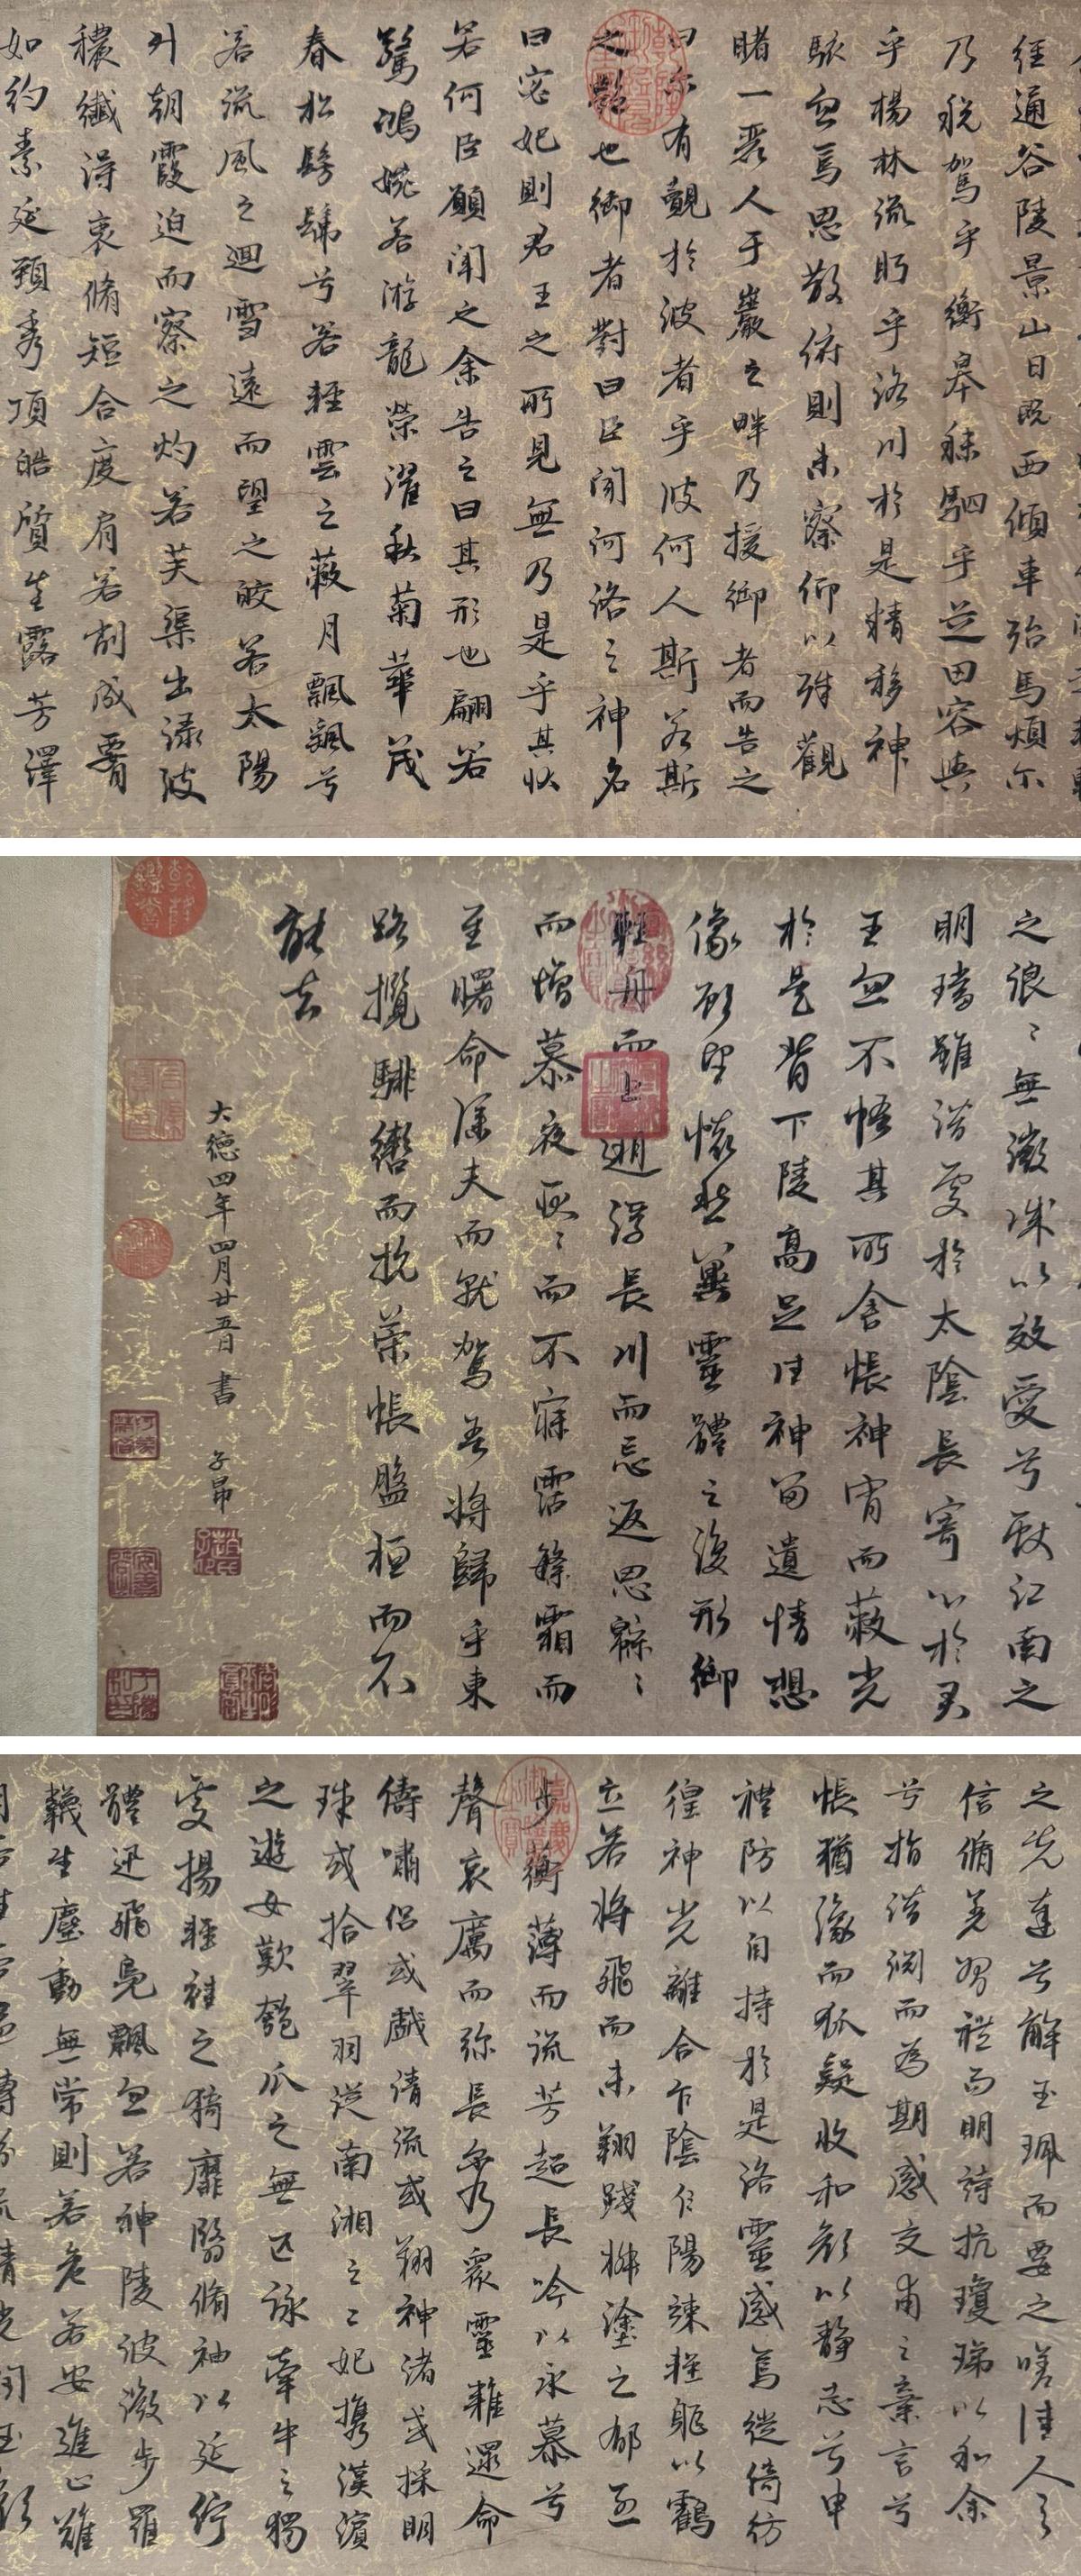 經通谷陵景山日既西傾車殆馬煩尓
乃稅駕乎蘅皋秣駟乎芝田容與
乎楊林流眄乎洛川於是精移神
駭忽焉思散俯則未察仰以殊觀
睹一麗人于巖之畔乃援御者而告之
曰尓有覿於波者乎彼何人斯若斯
之豔也御者對曰臣聞河洛之神名
曰宓妃則君王之所見無乃是乎其狀
若何臣願聞之余告之曰其形也翩若
驚鴻婉若游龍榮濯秋菊華茂
春松髣髴兮若輕雲之蔽月飄颻兮
若流風之迴雪遠而望之皎若太陽
升朝霞迫而察之灼若芙蕖出淥波
穠纖得衷脩短合度肩若削成要
如約素延頸秀項皓質呈露芳澤
之浪〻無微深以效愛兮獻江南之
明璫雖潛處於太陰長寄心於君
王忽不悟其所舍悵神宵而蔽光
於是背下陵高足往神留遺情想
像顧望懷愁冀靈體之復形御
輕舟而上遡浮長川而忘返思緜〻
而增慕夜耿〻而不寐霑繁霜而
至曙命僕夫而就駕吾將歸乎東
路攬騑轡而抗策悵盤桓而不
能去
大德四年四月廿五日書 子昂
之先達兮解玉珮而要之嗟佳人之
信脩羌習禮而明詩抗瓊珶以和余
兮指潛淵而為期感交甫之棄言兮
悵猶豫而狐疑收和顏以靜志兮申
禮防以自持於是洛靈感焉徙倚彷
徨神光離合乍陰乍陽竦輕軀以鶴
立若將飛而未翔踐椒塗之郁烈
步蘅薄而流芳超長吟以永慕兮
聲哀厲而弥長尒乃眾靈雜遝命
儔嘯侶或戲清流或翔神渚或採明
珠或拾翠羽從南湘之二妃携漢濱
之遊女歎匏瓜之無匹詠牽牛之獨
處揚輕袿之猗靡翳脩袖以延佇
體迅飛鳧飄忽若神陵波微步羅
韈生塵動無常則若危若安進止難